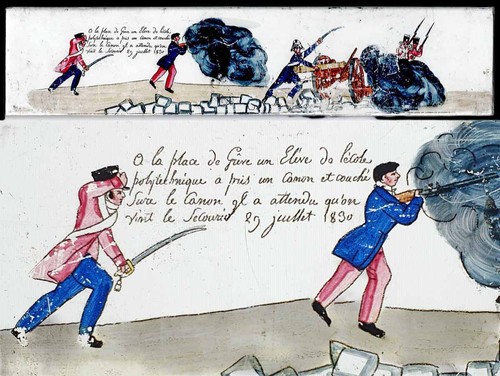 A la place de Grève un Elève de lécole
polytechnique a pris un Canon et couché
Sure le Canon yl a attendu qu'on
vint le Secourir 29 juillet 1830
A la place de Grève un Elève de lécole
polytechnique a pris un Canon et couché
Sure le Canon yl a attendu qu'on
vint le Secourir 29 juillet 1830